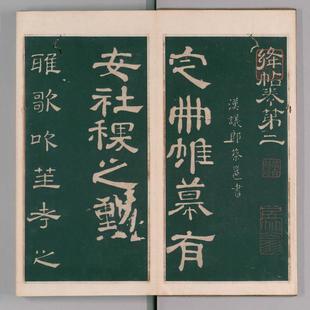 絳帖卷第二
漢議郎蔡邕書
定冊帷幕有
安社稷之勳
雎歌吹笙考之